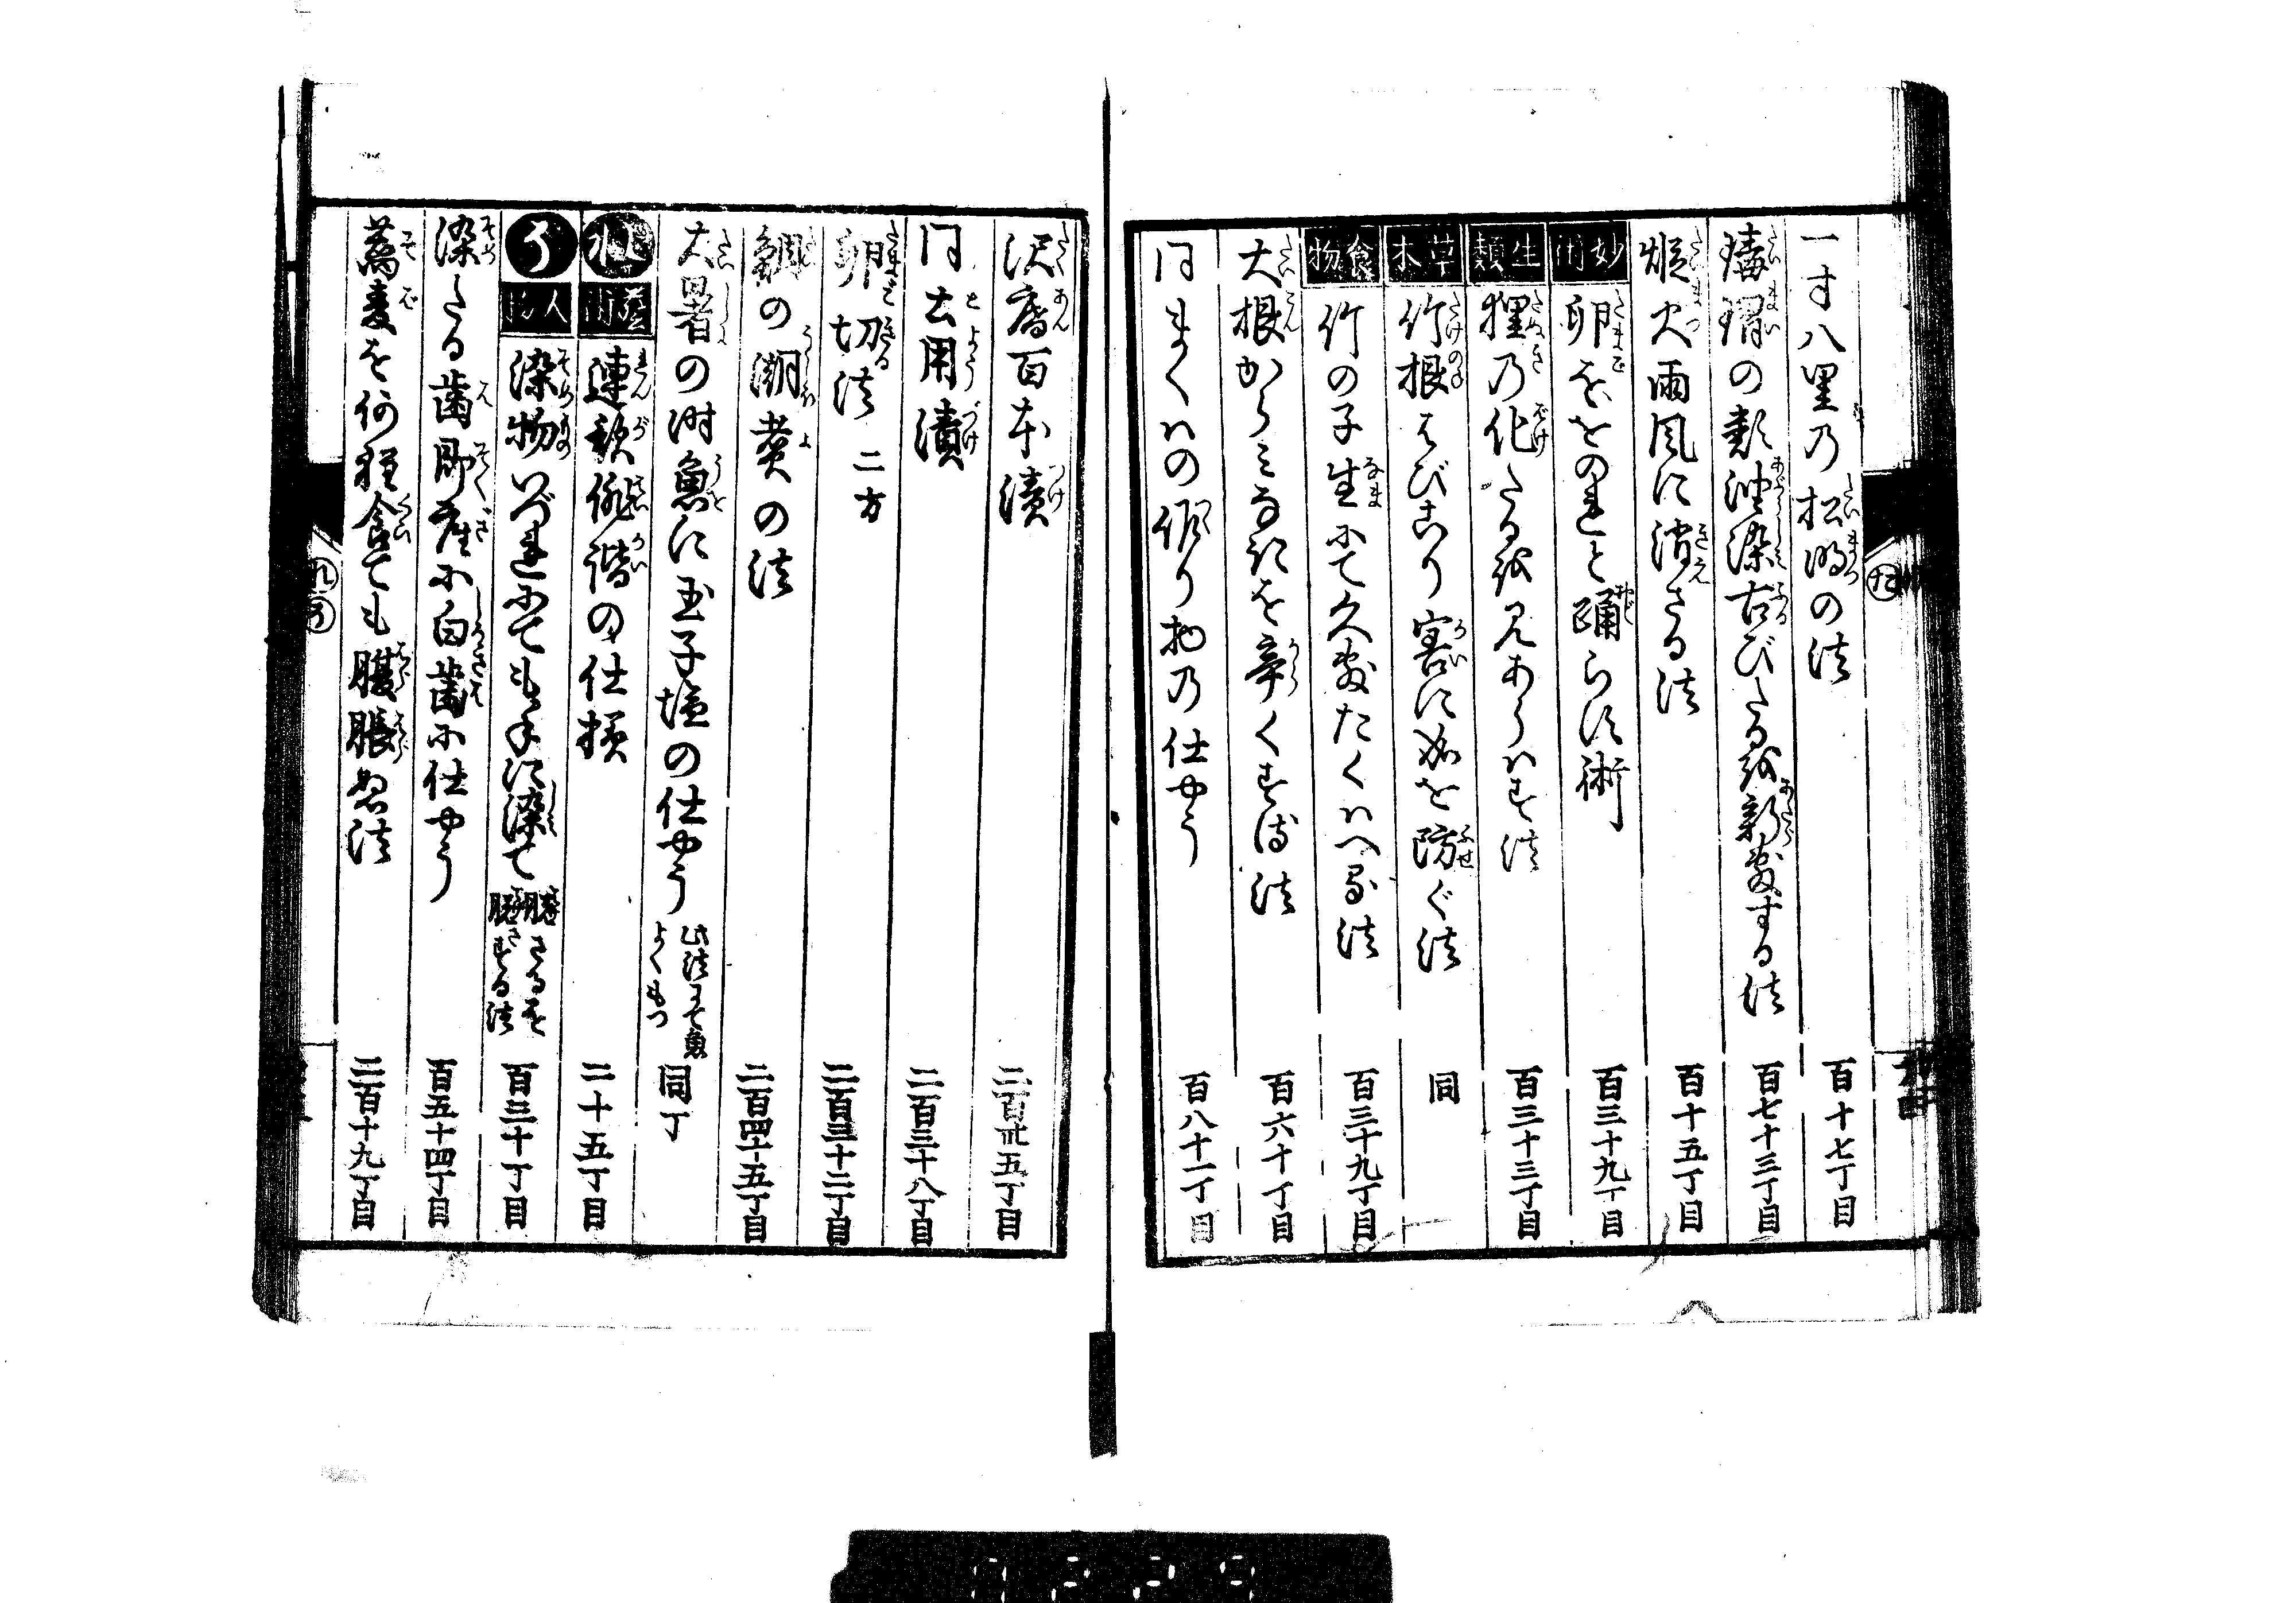 一寸八里乃松明の法 百十七丁目
瑇瑁の類油染古びたる我新敷する法 百七十三丁目
焼火雨風に消さる法 百十五丁目
妙術 卵をゝのれと踊らす術 百三十九丁目
生類 狸乃化たる我見あらハす法 百三十三丁目
草木 竹根はびこり害に成を防ぐ法 同
食物 竹の子生にて久敷たくハへる法 百三十九丁目
大根からみなきを辛くする法 百六十丁目
同まくハの作り物乃仕やう 百八十一丁目
沢庵百本漬 二百卅五丁目
同去用漬 二百三十八丁目
卵を切法 二方 二百三十二丁目
鯛の潮煮の法 二百四十五丁目
大暑の時魚に玉子塩の仕やう 此法にて魚よくもつ 同丁
れ 藝術 連歌俳諧の仕様 二十五丁目
そ 人品 染物いづれにても手に染て 百三十丁目
染たる歯即座に白歯に仕やう 百五十四丁目
蕎麦を何程食ても腹脹ぬ法 二百十九丁目
れ
そ